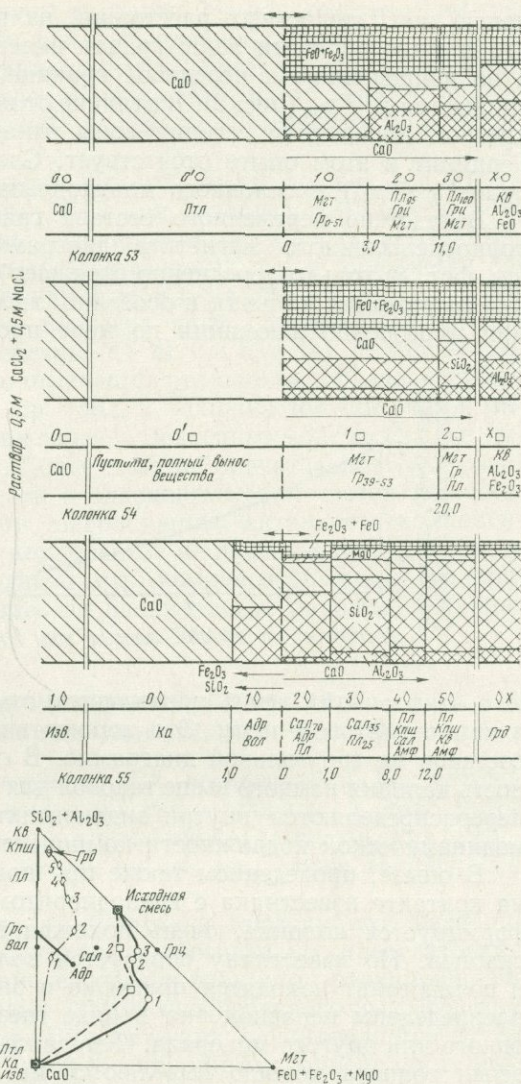 FeO+Fe₂O₃
CaO
Al₂O₃
CaO
0 ○ 0'○ 1 ○ 2 ○ 3 ○ X ○
CaO Птл Мгт Гр₀₋₅₁ Пл₉₅ Грц Мгт Пл₁₀₀ Грц Мгт Кв Al₂O₃ FeO
Колонка 53 0 3,0 11,0
Раствор 0,5М CaCl₂ + 0,5М NaCl
FeO+Fe₂O₃
CaO
SiO₂
Al₂O₃
CaO
0 □ 0'□ 1 □ 2 □ X □
CaO Пустота, полный вынос вещества Мгт Гр₃₉₋₅₃ Мгт Гр Пл Кв Al₂O₃ Fe₂O₃
Колонка 54 20,0
Fe₂O₃ + FeO
MgO
CaO
SiO₂
Fe₂O₃ CaO Al₂O₃
SiO₂
1 ◊ 0 ◊ 1 ◊ 2 ◊ 3 ◊ 4 ◊ 5 ◊ ◊ X
Изв. Ка Адр Вол Сал₇₀ Адр Пл Сал₃₅ Пл₂₅ Пл Кпш Сал Амф Пл Кпш Кв Амф Грд
Колонка 55 1,0 0 1,0 8,0 12,0
SiO₂ + Al₂O₃
Кв
Кпш
Грд
5
Пл
4
3
Исходная смесь
Грс
2
Вол
1
Сал
Адр
2
3
2
Грц
1
1
Птл
Ка
Изв.
CaO
Мгт
FeO + Fe₂O₃ + MgO